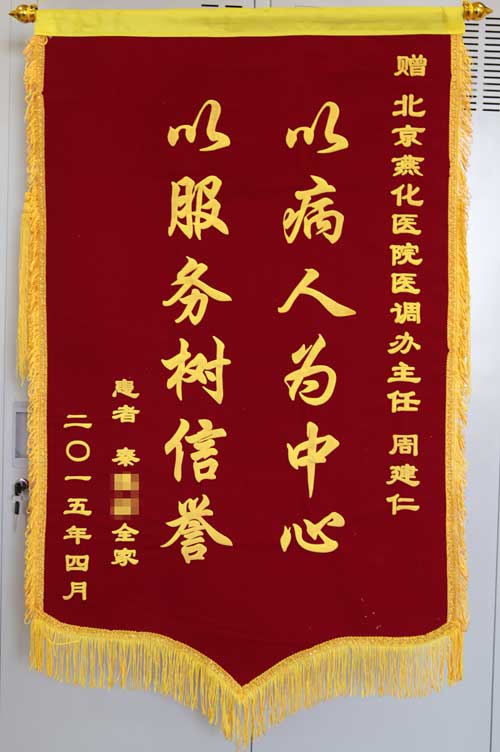 赠 北京燕化医院医调办主任 周建仁
以病人为中心
以服务树信誉
患者 秦 全家
二〇一五年四月